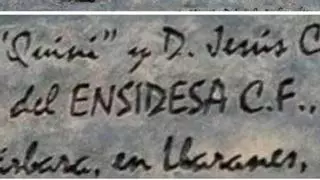 "Quini" y D. Jesús C
del ENSIDESA C.F.,
árbara, en Llaranes,